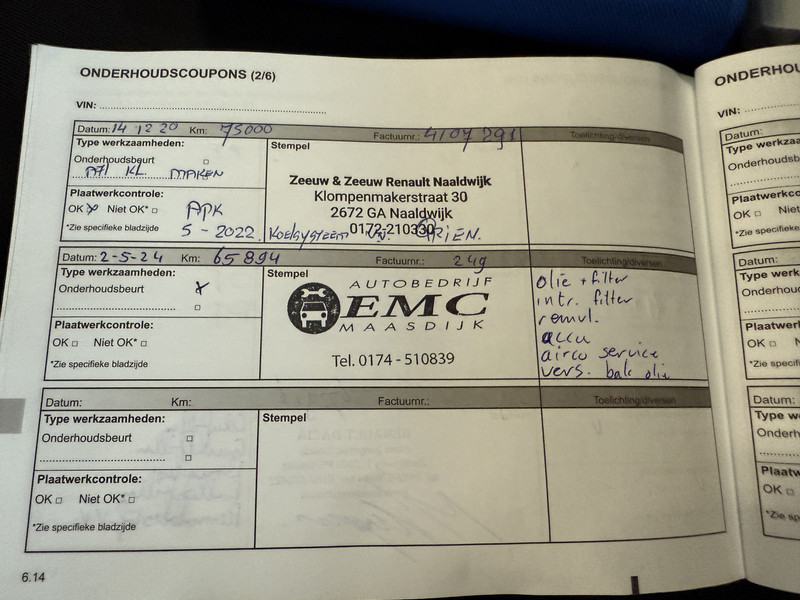 ONDERHOUDSCOUPONS (2/6)
VIN:
Datum: 14 12 20 Km: 75000 Factuurnr.: 4107291 Toelichting/diversen
Type werkzaamheden:
Onderhoudsbeurt
KL MAKEN
Plaatwerkcontrole:
OK Niet OK* APK
*Zie specifieke bladzijde 5-2022.
Stempel
Zeeuw & Zeeuw Renault Naaldwijk
Klompenmakerstraat 30
2672 GA Naaldwijk
0172-210330
Koelsysteem
Datum: 2-5-24 Km: 65894 Factuurnr.: 249 Toelichting/diversen
Type werkzaamheden:
Onderhoudsbeurt x
Plaatwerkcontrole:
OK Niet OK*
*Zie specifieke bladzijde
Stempel
AUTOBEDRIJF
EMC
MAASDIJK
Tel. 0174 - 510839
olie + filter
intr. filter
remvl.
accu
airco service
vers. bak olie
Datum: Km: Factuurnr.: Toelichting/diversen
Type werkzaamheden:
Onderhoudsbeurt
Plaatwerkcontrole:
OK Niet OK*
*Zie specifieke bladzijde
Stempel
6.14
ONDERHOU
VIN:
Datum:
Type werkza
Onderhoudsb
Plaatwerkcon
OK Niet
*Zie specifiek
Datum:
Type werk
Onderhoud
Plaatwerk
OK
*Zie speci
Datum:
Type w
Onderh
Plaatw
OK
*Zie sp